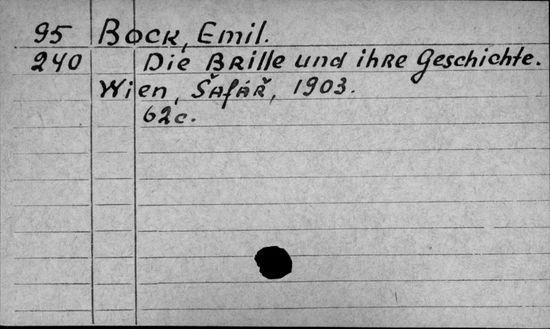 95 Bock, Emil.
240 Die Brille und ihre Geschichte.
Wien, Šafář, 1903.
62c.